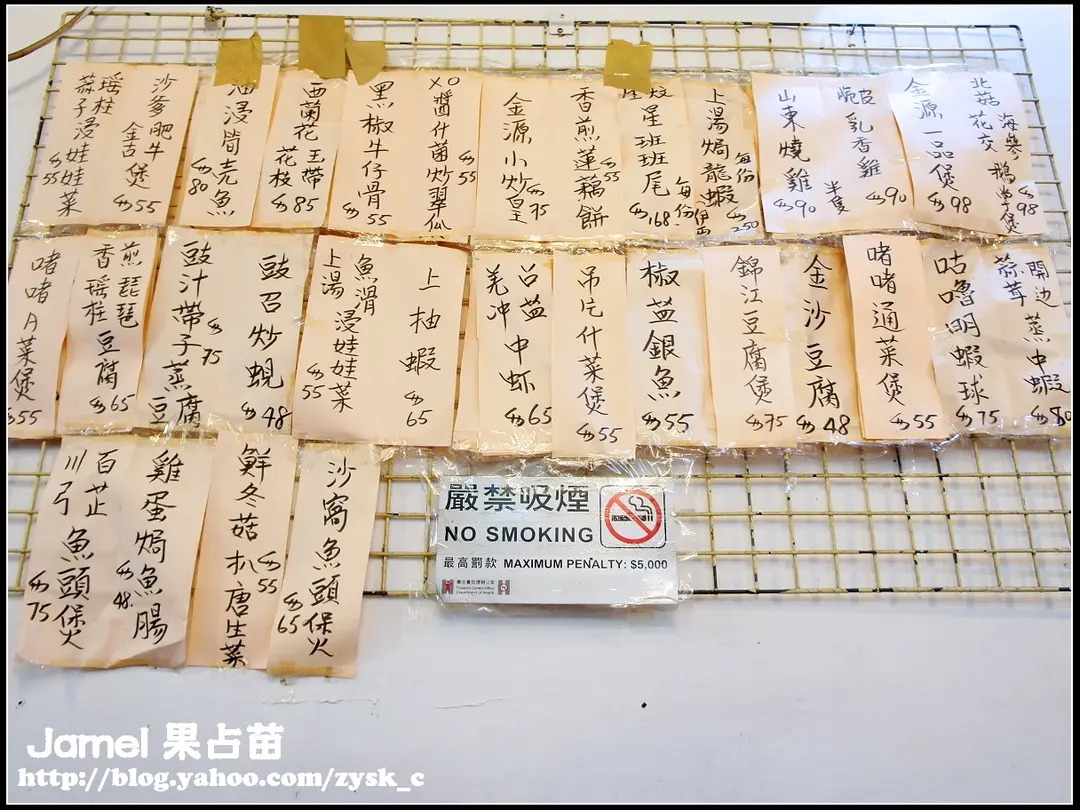 瑤柱
蒜子浸娃娃菜
55
沙爹肥牛
金古煲
55
油浸筒壳魚
80
西蘭花玉帶
花枝
85
黑椒牛仔骨
55
XO醬什菌炒翠瓜
55
金源小炒皇
75
香煎蓮藕餅
55
星班班尾
每份
168
上湯焗龍蝦
每份
250
山東燒雞
90
脆皮乳香雞
半隻
90
金源一品煲
98
北菇花交
海參鵝掌煲
98
啫啫A菜煲
55
煎琵琶
香瑤柱豆腐
65
豉汁帶子蒸豆腐
75
豉召炒蜆
48
魚滑
上湯浸娃娃菜
55
上抽蝦
65
召蓝中虾
羌冲
65
吊片什菜煲
55
椒蓝銀魚
55
錦江豆腐煲
75
金沙豆腐
48
啫啫通菜煲
55
咕嚕明蝦球
75
開边
蒜茸蒸中蝦
80
川弓
百芷
魚頭煲
75
雞蛋焗魚腸
48
鮮冬菇扒唐生菜
55
沙窩魚頭煲
65
嚴禁吸煙
NO SMOKING
最高罰款 MAXIMUM PENALTY: $5,000
Tobacco Control Office
Department of Health
Jamel 果占苗
http://blog.yahoo.com/zysk_c